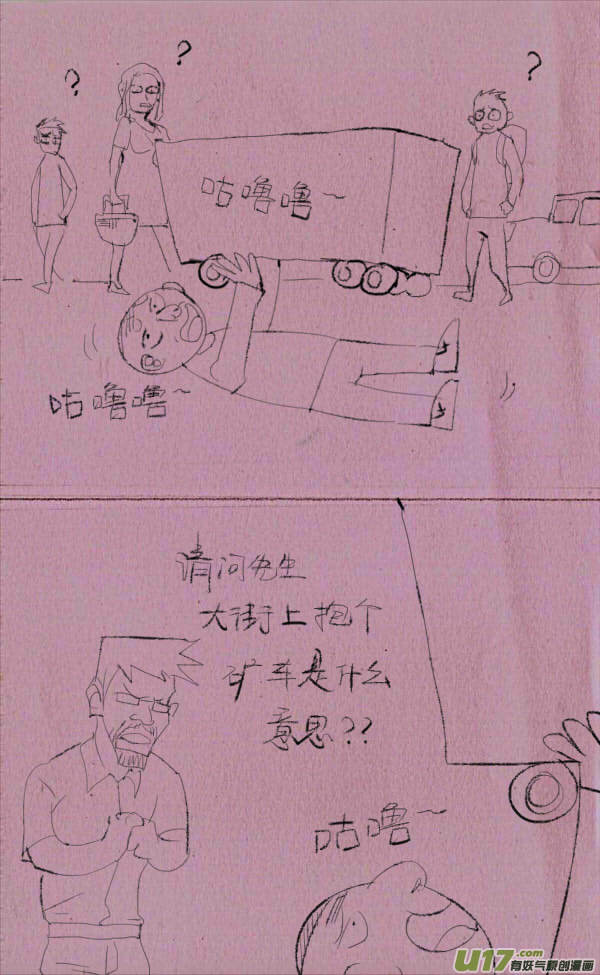 ?
?
?
咕噜噜~
咕噜噜~
请问先生
大街上抱个
矿车是什么
意思??
咕噜~
U17.com
有妖气原创漫画